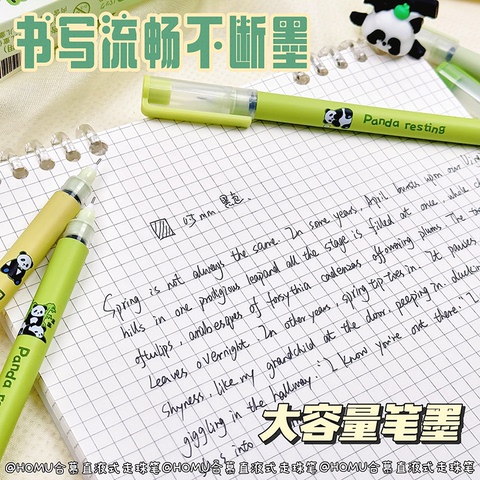 书写流畅不断墨
Panda resting
0.5mm 黑色
Spring is not always the same. In some years, April bursts upon our Vir
hills in one prodigious leap and all the stage is filled at once, whole ch
of tulips, arabesques of forsythia cadenzas of flowering plums. The tre
leaves overnight. In other years, spring tiptoes in. It pauses
shyness, like my grandchild at the door, peeping in, ducking
giggling in the hallway. "I know you're out there." I
into
Panda res
大容量笔墨
@HOMU合慕直液式走珠笔@HOMU合慕直液式走珠笔@HOMU合慕直液式走珠笔